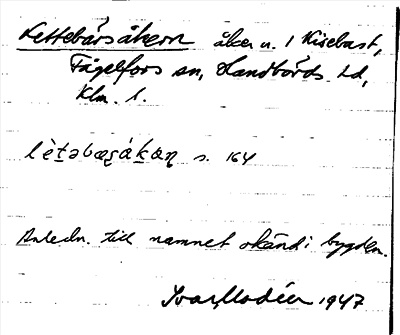 Lettebårsåkern åker u. 1 Kisebast,
Fågelfors sn, Handbörds hd,
Klm. l.
lèt̠əbæʂák̠aɳ s. 164
Anledn. till namnet okänd i bygden.
Ivar Modéer 1947